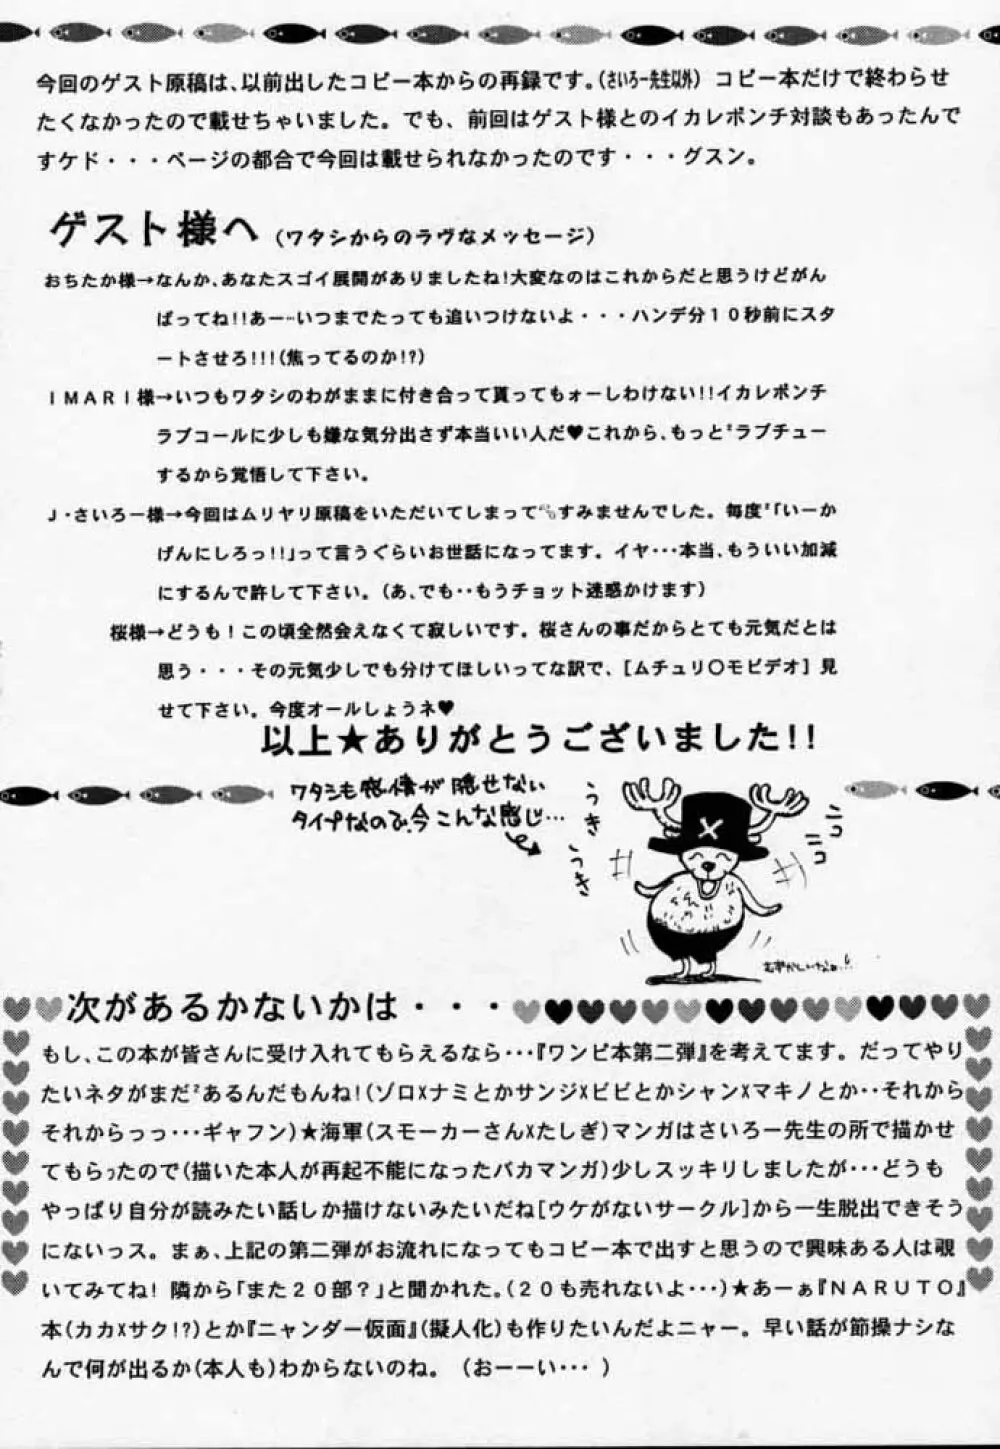 今回のゲスト原稿は、以前出したコピー本からの再録です。(さいろー先生以外) コピー本だけで終わらせ
たくなかったので載せちゃいました。でも、前回はゲスト様とのイカレポンチ対談もあったんで
すケド・・・ページの都合で今回は載せられなかったのです・・・グスン。
ゲスト様へ (ワタシからのラヴなメッセージ)
おちたか様→なんか、あなたスゴイ展開がありましたね!大変なのはこれからだと思うけどがん
ばってね!!あー…いつまでたっても追いつけないよ・・・ハンデ分10秒前にスタ
ートさせろ!!!(焦ってるのか!?)
IMARI様→いつもワタシのわがままに付き合って貰ってもォーしわけない!!イカレポンチ
ラブコールに少しも嫌な気分出さず本当いい人だ♥これから、もっと²ラブチュー
するから覚悟して下さい。
J・さいろー様→今回はムリヤリ原稿をいただいてしまってすみませんでした。毎度²「いーか
げんにしろっ!!」って言うぐらいお世話になってます。イヤ・・・本当、もういい加減
にするんで許して下さい。(あ、でも・・もうチョット迷惑かけます)
桜様→どうも!この頃全然会えなくて寂しいです。桜さんの事だからとても元気だとは
思う・・・その元気少しでも分けてほしいってな訳で、[ムチュリ〇モビデオ]見
せて下さい。今度オールしょうネ♥
以上★ありがとうございました!!
ワタシも感情が隠せない
タイプなので、今こんな感じ…
うき
うき
ニコ
ニコ
むずかしいなぁ!!
次があるかないかは・・・
もし、この本が皆さんに受け入れてもらえるなら・・・『ワンピ本第二弾』を考えてます。だってやり
たいネタがまだ²あるんだもんね!(ゾロxナミとかサンジxビビとかシャンxマキノとか・・それから
それからっっ・・・ギャフン)★海軍(スモーカーさんxたしぎ)マンガはさいろー先生の所で描かせ
てもらったので(描いた本人が再起不能になったバカマンガ)少しスッキリしましたが・・・どうも
やっぱり自分が読みたい話しか描けないみたいだね[ウケがないサークル]から一生脱出できそう
にないっス。まぁ、上記の第二弾がお流れになってもコピー本で出すと思うので興味ある人は覗
いてみてね! 隣から「また20部?」と聞かれた。(20も売れないよ・・・)★あーぁ『NARUTO』
本(カカxサク!?)とか『ニャンダー仮面』(擬人化)も作りたいんだよニャー。早い話が節操ナシな
んで何が出るか(本人も)わからないのね。 (おーーい・・・ )